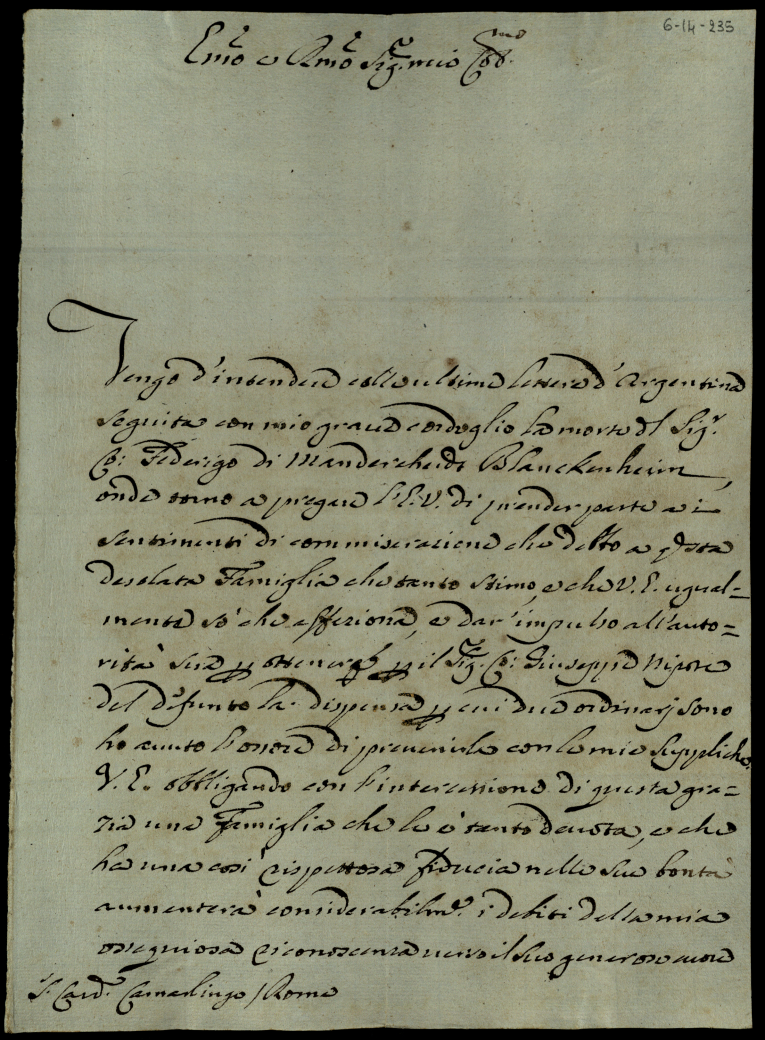 6-14-235
Em.o e Rm.o Sig.r mio Col.mo
Vengo d'intendere colle ultime lettere d'Argentina
seguita con mio grave cordoglio la morte dl Sig.r
Co: Federigo di Manderscheidt Blanckenheim,
onde torno a pregare l'E.V. di prender parte ai
sentimenti di commiserazione che detto a qsta
desolata Famiglia che tanto stimo, e che V.E. ugual=
mente so' che affeziona, e dar' impulso all'auto=
rità sua p ottenere p il Sig.r Co: Giuseppe Nipote
del defunto la dispensa p cui due ordinarj sono
ho avuto l'onore di prevenirla con le mie suppliche.
V.E. obbligando con l'intercessione di questa gra=
zia una Famiglia che le è tanto devota, e che
ha una così rispettosa fiducia nelle sue bontà
aumenterà considerabilm.e i debiti della mia
ossequiosa riconoscenza verso il suo generoso cuore
S.r Card.l Camarlingo / Roma